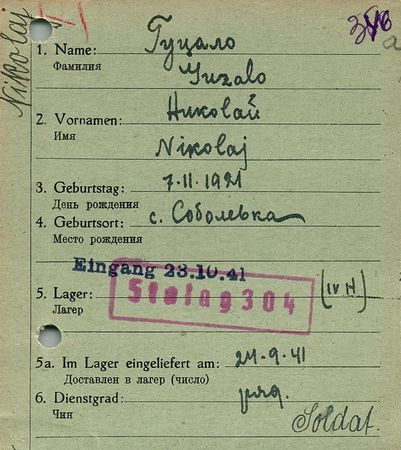 Nikolaj
1. Name: Гуцало
Фамилия Guzalo
2. Vornamen: Николай
Имя Nikolaj
3. Geburtstag: 7.11.1921
День рождения
4. Geburtsort: с. Соболевка
Место рождения
Eingang 23.10.41
5. Lager: Stalag 304 (IV H)
Лагер
5a. Im Lager eingeliefert am: 24.9.41
Доставлен в лагер (число)
6. Dienstgrad: ряд.
Чин Soldat.